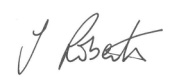 J Roberts